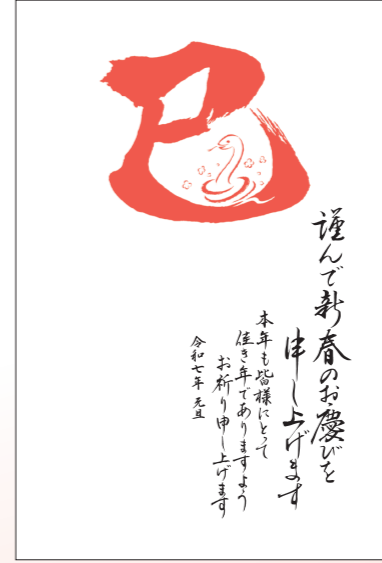 巳
謹んで新春のお慶びを
申し上げます
本年も皆様にとって
佳き年でありますよう
お祈り申し上げます
令和七年 元旦